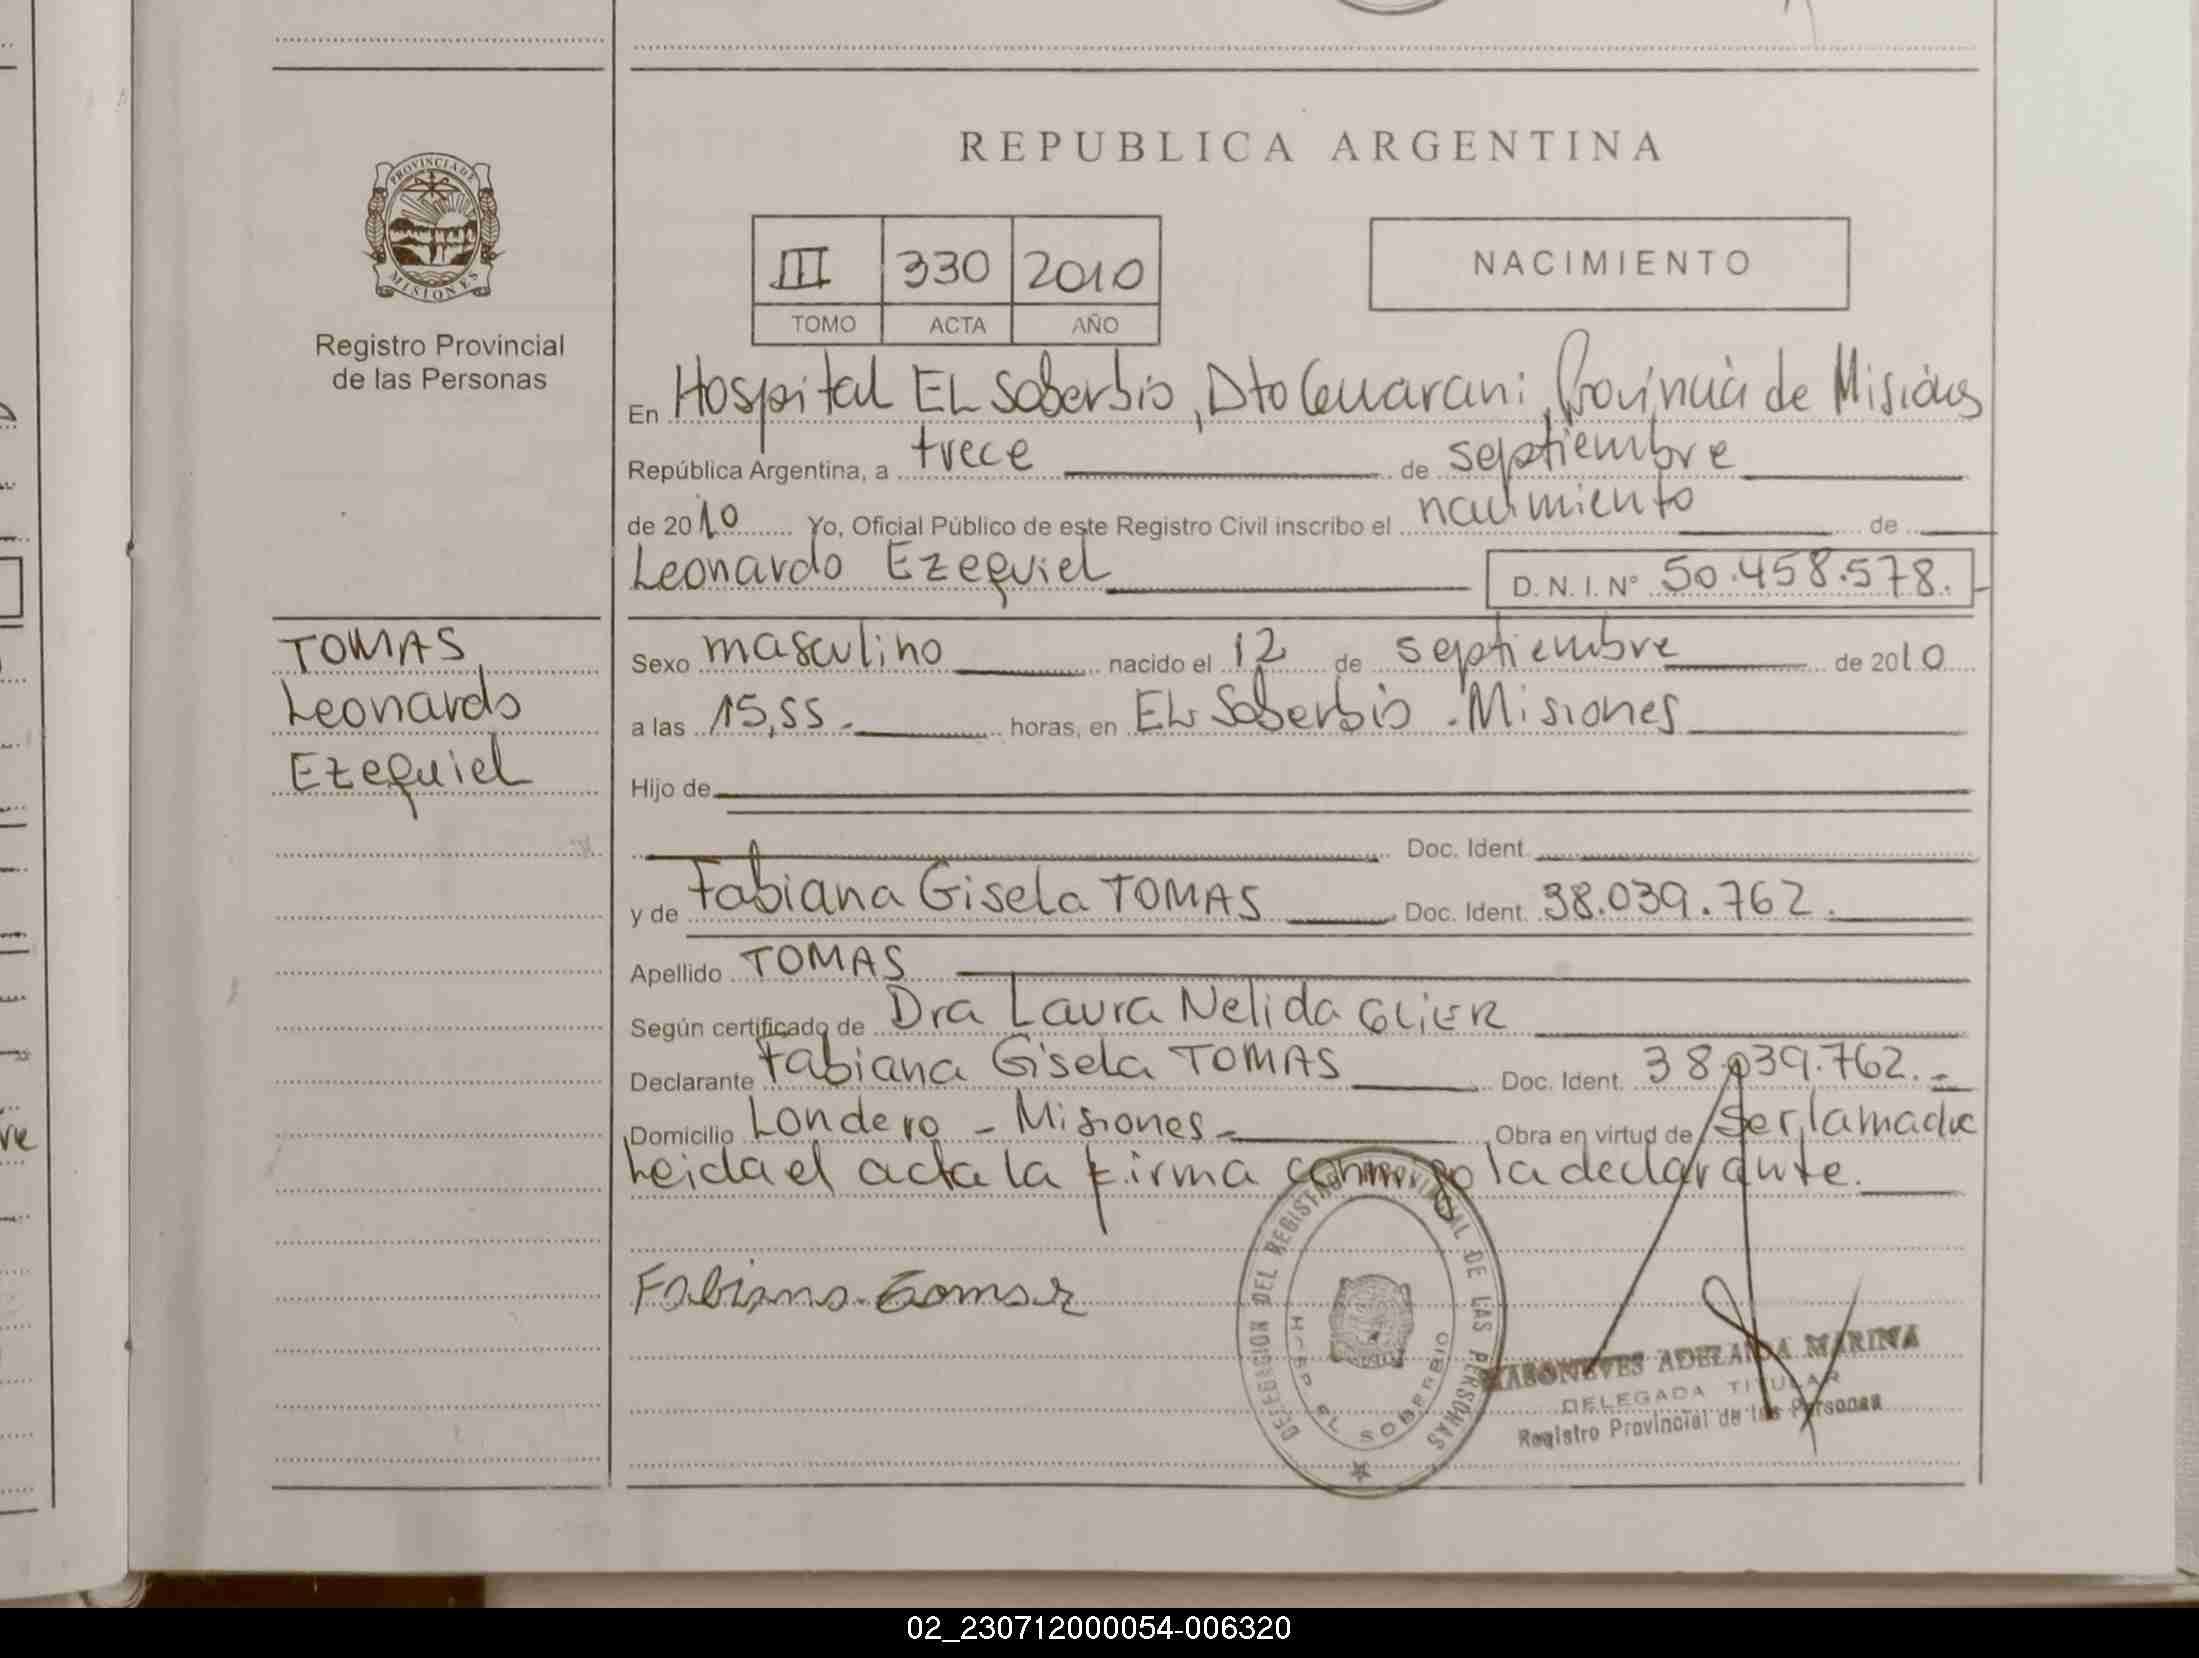 REPUBLICA ARGENTINA
PROVINCIA DE
MISIONES
Registro Provincial
de las Personas
III 330 2010
TOMO ACTA AÑO
NACIMIENTO
En Hospital EL Soberbio, Dto Guarani, Provincia de Misiones
República Argentina, a trece de septiembre
de 2010 Yo, Oficial Público de este Registro Civil inscribo el nacimiento de
Leonardo Ezequiel D. N. I. Nº 50.458.578.
TOMAS
Leonardo
Ezequiel
Sexo masculino nacido el 12 de septiembre de 2010
a las 15,55.- horas, en EL Soberbio . Misiones
Hijo de
Doc. Ident.
y de Fabiana Gisela TOMAS Doc. Ident. 38.039.762.
Apellido TOMAS
Según certificado de Dra Laura Nelida GLIER
Declarante Fabiana Gisela TOMAS Doc. Ident. 38.039.762.-
Domicilio Londero - Misiones - Obra en virtud de ser la madre
Leida el acta la firma conmigo la declarante.
Fabiana
DELEGACION DEL REGISTRO PROVINCIAL DE LAS PERSONAS
HOSP EL SOBERBIO
ADELAIDA MARINA
DELEGADA TITULAR
Registro Provincial de las Personas
02_230712000054-006320